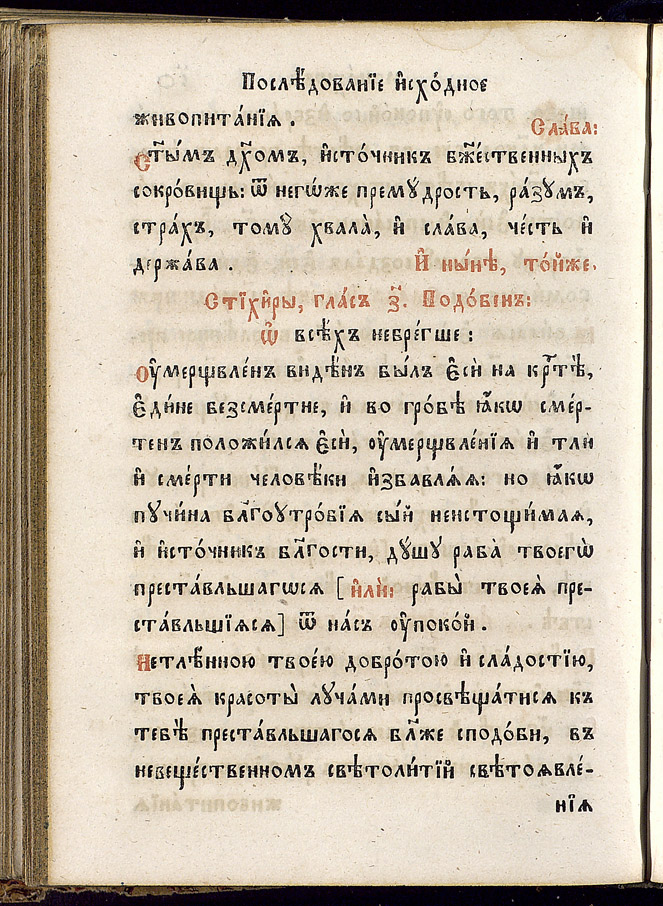 Послѣ́дованїе и҆схо́дное
живопита́нїѧ.
Сла́ва:
Ст҃ы́мъ дх҃омъ, и҆сто́чникъ бж҃е́ственныхъ
сокро́вищъ: ѿ негѡ́же премꙋ́дрость, ра́зꙋмъ,
стра́хъ, томꙋ̀ хвала̀, и҆ сла́ва, че́сть и҆
держа́ва. И҆ ны́нѣ, то́йже.
Стїхи̑ры, гла́съ з҃. Подо́бенъ:
Ѡ҆ всѣ́хъ небре́гше:
Оу҆мерщвле́нъ ви́дѣнъ бы́лъ є҆сѝ на крⷭ҇тѣ̀,
є҆ди́не безсме́ртне, и҆ во гро́бѣ ꙗ҆́кѡ сме́р-
тенъ положи́лсѧ є҆сѝ, оу҆мерщвле́нїѧ и҆ тлѝ
и҆ сме́рти человѣ́ки и҆збавлѧ́ѧ: но ꙗ҆́кѡ
пꙋчи́на бл҃гоꙋтро́бїѧ сы́й неистощи́маѧ,
и҆ и҆сто́чникъ бл҃гости, дꙋ́шꙋ раба̀ твоегѡ̀
преста́вльшагѡсѧ [и҆лѝ: рабы̀ твоеѧ̀ пре-
ста́вльшїѧсѧ] ѿ на́съ оу҆поко́й.
Нетлѣ́нною твое́ю добро́тою и҆ сла́достїю,
твоеѧ̀ красоты̀ лꙋча́ми просвѣща́тисѧ къ
тебѣ̀ преста́вльшагосѧ бл҃же сподо́би, въ
невеще́ственномъ свѣтоли́тїй свѣтоѧвле́-
нїѧ